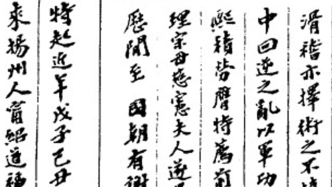 滑稽亦擇術之不慎
中回逆之亂以軍功
熙積勞曆特薦
理宗母慈憲夫人
歷閱至 國朝有
特起近年戊子己丑
來揚州人甯紹道